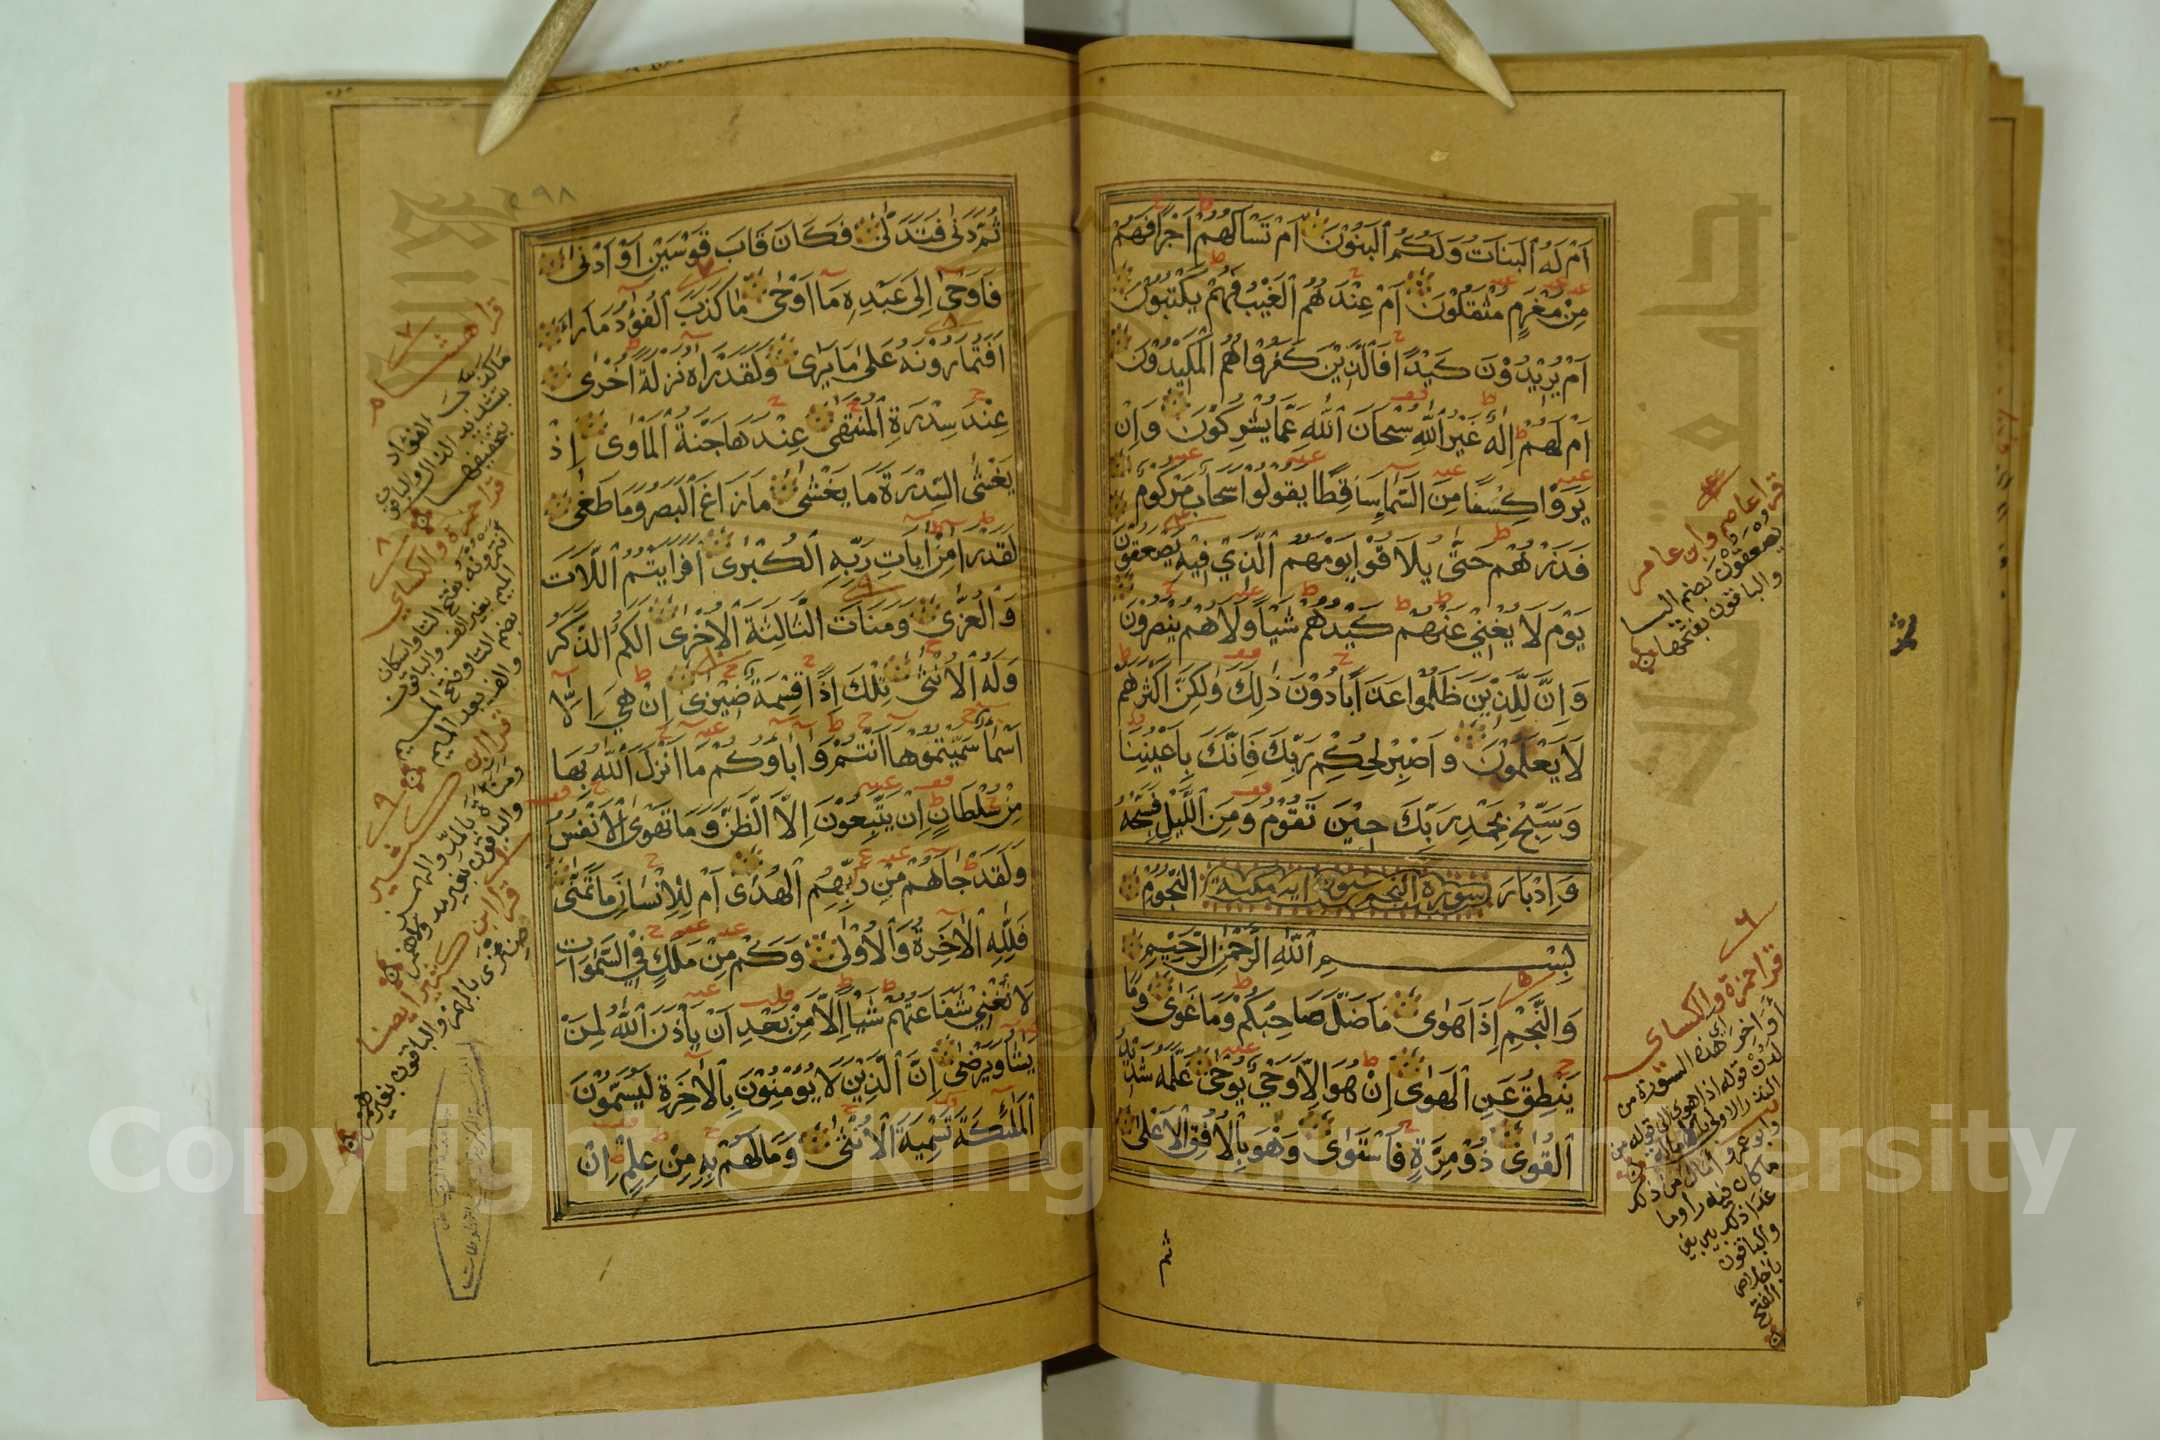 اَمْ لَهُ الْبَنَاتُ وَلَكُمُ الْبَنُوْنَ اَمْ تَسْاَلُهُمْ اَجْرًا فَهُمْ
مِنْ مَغْرَمٍ مُثْقَلُوْنَ اَمْ عِنْدَهُمُ الْغَيْبُ فَهُمْ يَكْتُبُوْنَ
اَمْ يُرِيْدُوْنَ كَيْدًا فَالَّذِيْنَ كَفَرُوْا هُمُ الْمَكِيْدُوْنَ
اَمْ لَهُمْ اِلٰهٌ غَيْرُ اللّٰهِ سُبْحَانَ اللّٰهِ عَمَّا يُشْرِكُوْنَ وَاِنْ
يَرَوْا كِسْفًا مِنَ السَّمَاءِ سَاقِطًا يَقُوْلُوْا سَحَابٌ مَرْكُوْمٌ
فَذَرْهُمْ حَتّٰى يُلَاقُوْا يَوْمَهُمُ الَّذِيْ فِيْهِ يُصْعَقُوْنَ
يَوْمَ لَا يُغْنِيْ عَنْهُمْ كَيْدُهُمْ شَيْاً وَلَا هُمْ يُنْصَرُوْنَ
وَاِنَّ لِلَّذِيْنَ ظَلَمُوْا عَذَابًا دُوْنَ ذٰلِكَ وَلٰكِنَّ اَكْثَرَهُمْ
لَا يَعْلَمُوْنَ وَاصْبِرْ لِحُكْمِ رَبِّكَ فَاِنَّكَ بِاَعْيُنِنَا
وَسَبِّحْ بِحَمْدِ رَبِّكَ حِيْنَ تَقُوْمُ وَمِنَ اللَّيْلِ فَسَبِّحْهُ
وَاِدْبَارَ سورة النجم النُّجُوْمِ
بِسْمِ اللّٰهِ الرَّحْمٰنِ الرَّحِيْمِ
وَالنَّجْمِ اِذَا هَوٰى مَا ضَلَّ صَاحِبُكُمْ وَمَا غَوٰى وَمَا
يَنْطِقُ عَنِ الْهَوٰى اِنْ هُوَ اِلَّا وَحْيٌ يُوْحٰى عَلَّمَهُ شَدِيْدُ
الْقُوٰى ذُوْ مِرَّةٍ فَاسْتَوٰى وَهُوَ بِالْاُفُقِ الْاَعْلٰى
ثم
قرا عاصم وابن عامر
يصعقون بضم اليا
والباقون بفتحها
٦
قرا حمزة والكساى
والباقون
الفتح
٤٩٨
ثُمَّ دَنٰى فَتَدَلّٰى فَكَانَ قَابَ قَوْسَيْنِ اَوْ اَدْنٰى
فَاَوْحٰى اِلٰى عَبْدِهِ مَا اَوْحٰى مَا كَذَبَ الْفُؤَادُ مَا رَاٰى
اَفَتُمَارُوْنَهُ عَلٰى مَا يَرٰى وَلَقَدْ رَاٰهُ نَزْلَةً اُخْرٰى
عِنْدَ سِدْرَةِ الْمُنْتَهٰى عِنْدَهَا جَنَّةُ الْمَاْوٰى اِذْ
يَغْشَى السِّدْرَةَ مَا يَغْشٰى مَا زَاغَ الْبَصَرُ وَمَا طَغٰى
لَقَدْ رَاٰى مِنْ اٰيَاتِ رَبِّهِ الْكُبْرٰى اَفَرَاَيْتُمُ اللَّاتَ
وَالْعُزّٰى وَمَنَاتَ الثَّالِثَةَ الْاُخْرٰى اَلَكُمُ الذَّكَرُ
وَلَهُ الْاُنْثٰى تِلْكَ اِذًا قِسْمَةٌ ضِيْزٰى اِنْ هِيَ اِلَّا
اَسْمَاءٌ سَمَّيْتُمُوْهَا اَنْتُمْ وَاٰبَاؤُكُمْ مَا اَنْزَلَ اللّٰهُ بِهَا
مِنْ سُلْطَانٍ اِنْ يَتَّبِعُوْنَ اِلَّا الظَّنَّ وَمَا تَهْوَى الْاَنْفُسُ
وَلَقَدْ جَاءَهُمْ مِنْ رَبِّهِمُ الْهُدٰى اَمْ لِلْاِنْسَانِ مَا تَمَنّٰى
فَلِلّٰهِ الْاٰخِرَةُ وَالْاُوْلٰى وَكَمْ مِنْ مَلَكٍ فِي السَّمٰوَاتِ
لَا تُغْنِيْ شَفَاعَتُهُمْ شَيْاً اِلَّا مِنْ بَعْدِ اَنْ يَاْذَنَ اللّٰهُ لِمَنْ
يَشَاءُ وَيَرْضٰى اِنَّ الَّذِيْنَ لَا يُؤْمِنُوْنَ بِالْاٰخِرَةِ لَيُسَمُّوْنَ
الْمَلٰئِكَةَ تَسْمِيَةَ الْاُنْثٰى وَمَا لَهُمْ بِهِ مِنْ عِلْمٍ اِنْ
٧
قرا هشام
ما كذب الفؤاد
بتشديد الذال والباقون
بتخفيفها
٨
قرا حمزة والكساى
والباقون
بضم التا وفتح الميم
والف بعد الميم
٩
قرا ابن كثير
ومناة بالمد والهمز
والباقون بغير مد ولا همز
قرا ابن كثير ايضا
ضئزى بالهمز والباقون بغير همز
Copyright © King Saud University